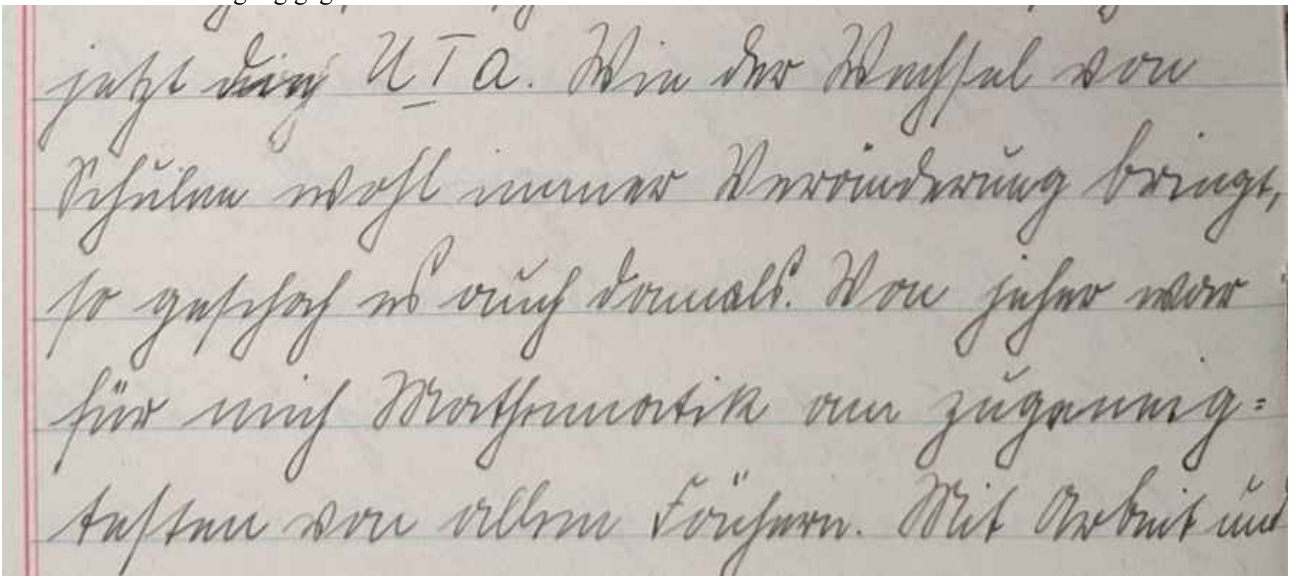 jetzt die U I a. Wie der Wechsel von
Schulen wohl immer Veränderung bringt,
so geschah es auch damals. Von jeher war
für mich Mathematik am zugeneig=
testen von allen Fächern. Mit Arbeit und